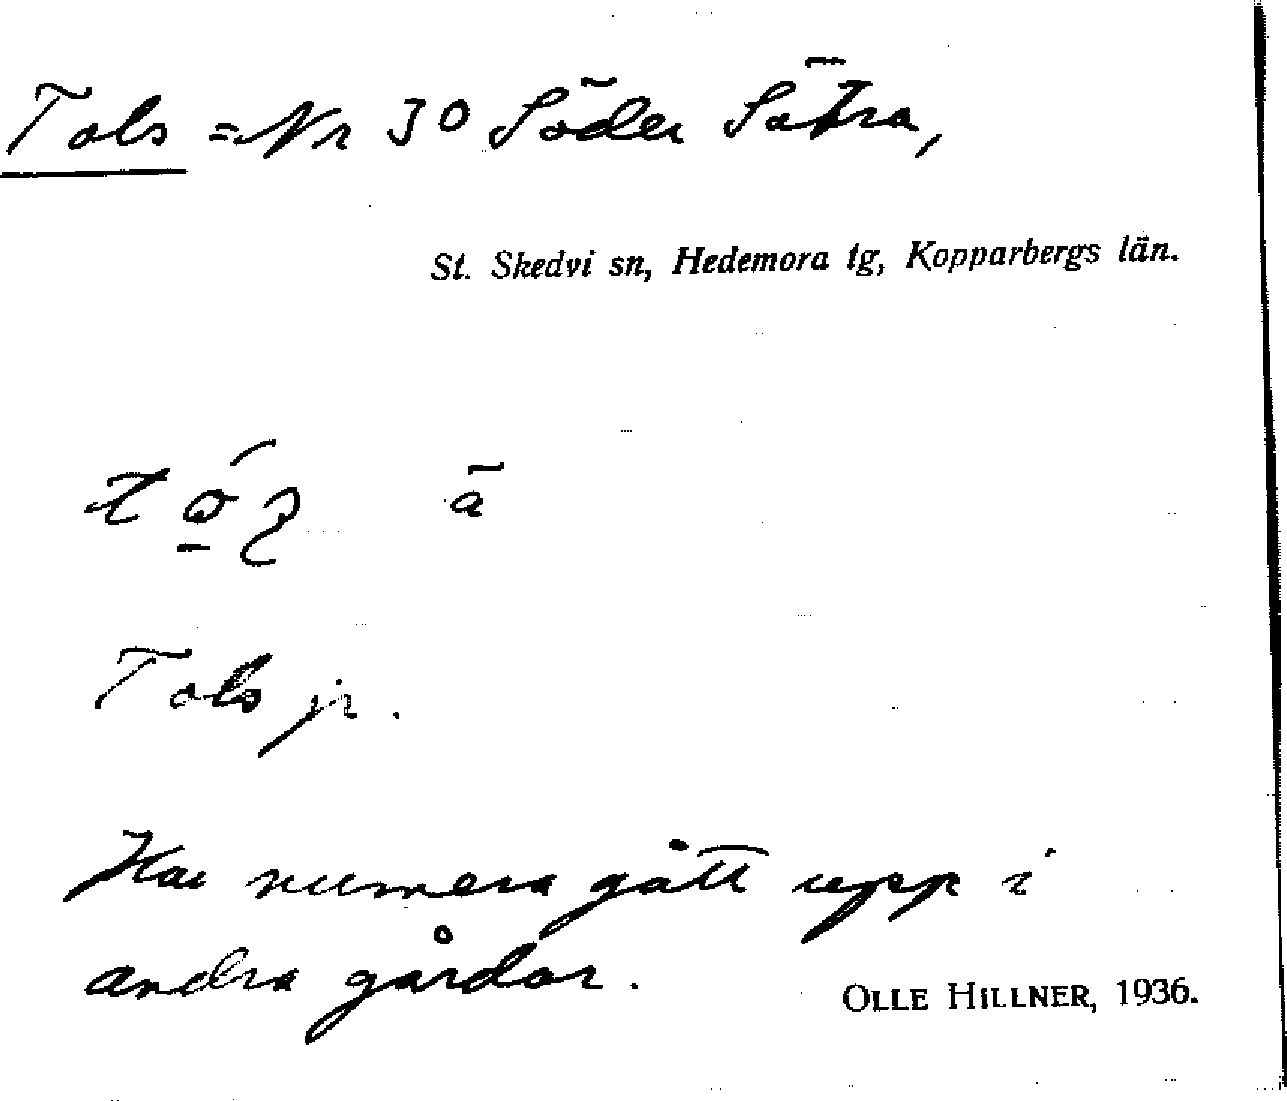 Tols = Nr 30 Söder Sätra,
St. Skedvi sn, Hedemora tg, Kopparbergs län.
ā
Tols jr.
Har numera gått upp i
andra gårdar.
OLLE HILLNER, 1936.